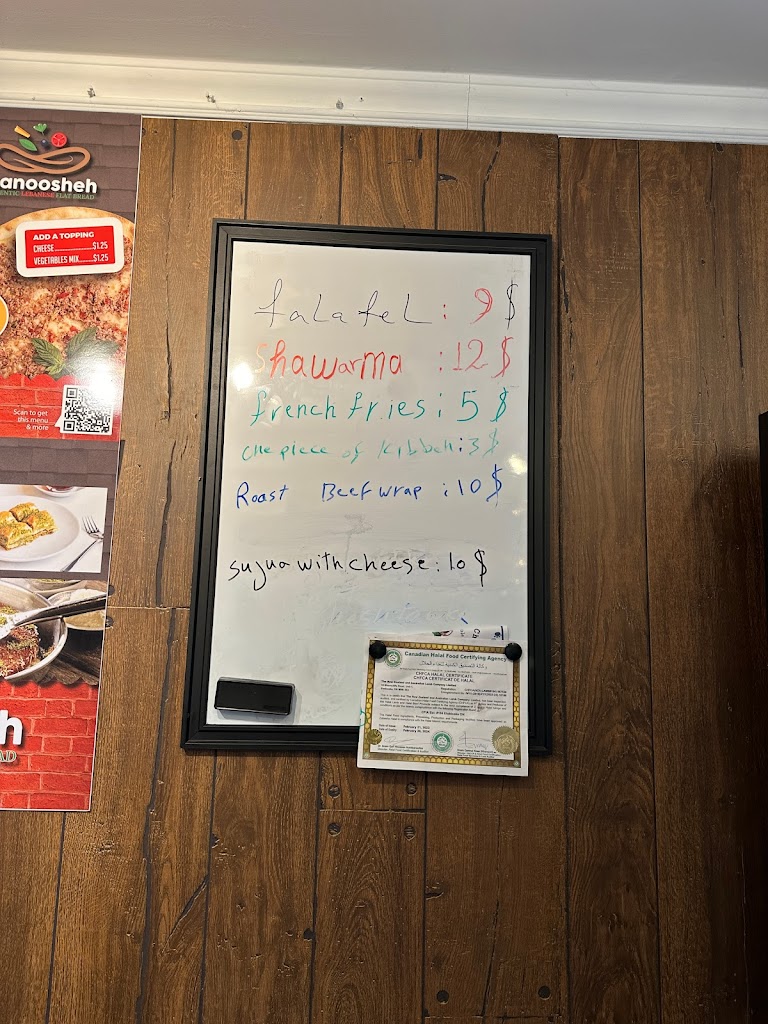 anoosheh
ENTIC LEBANESE FLAT BREAD
ADD A TOPPING
CHEESE.............$1.25
VEGETABLES MIX.......$1.25
Scan to get
this menu
& more
h
AD
falafel: 9$
shawarma :12$
french fries: 5$
One piece of Kibbeh:3$
Roast Beef wrap :10$
sujua with cheese: 10$
Canadian Halal Food Certifying Agency
CHFCA HALAL CERTIFICATE
CHFCA CERTIFICAT DE HALAL